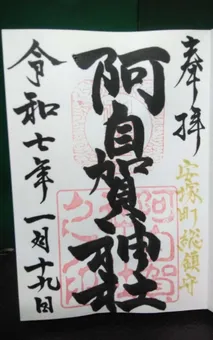 奉拝
安塚町 総領守
阿自賀神社
令和七年 一月十九日